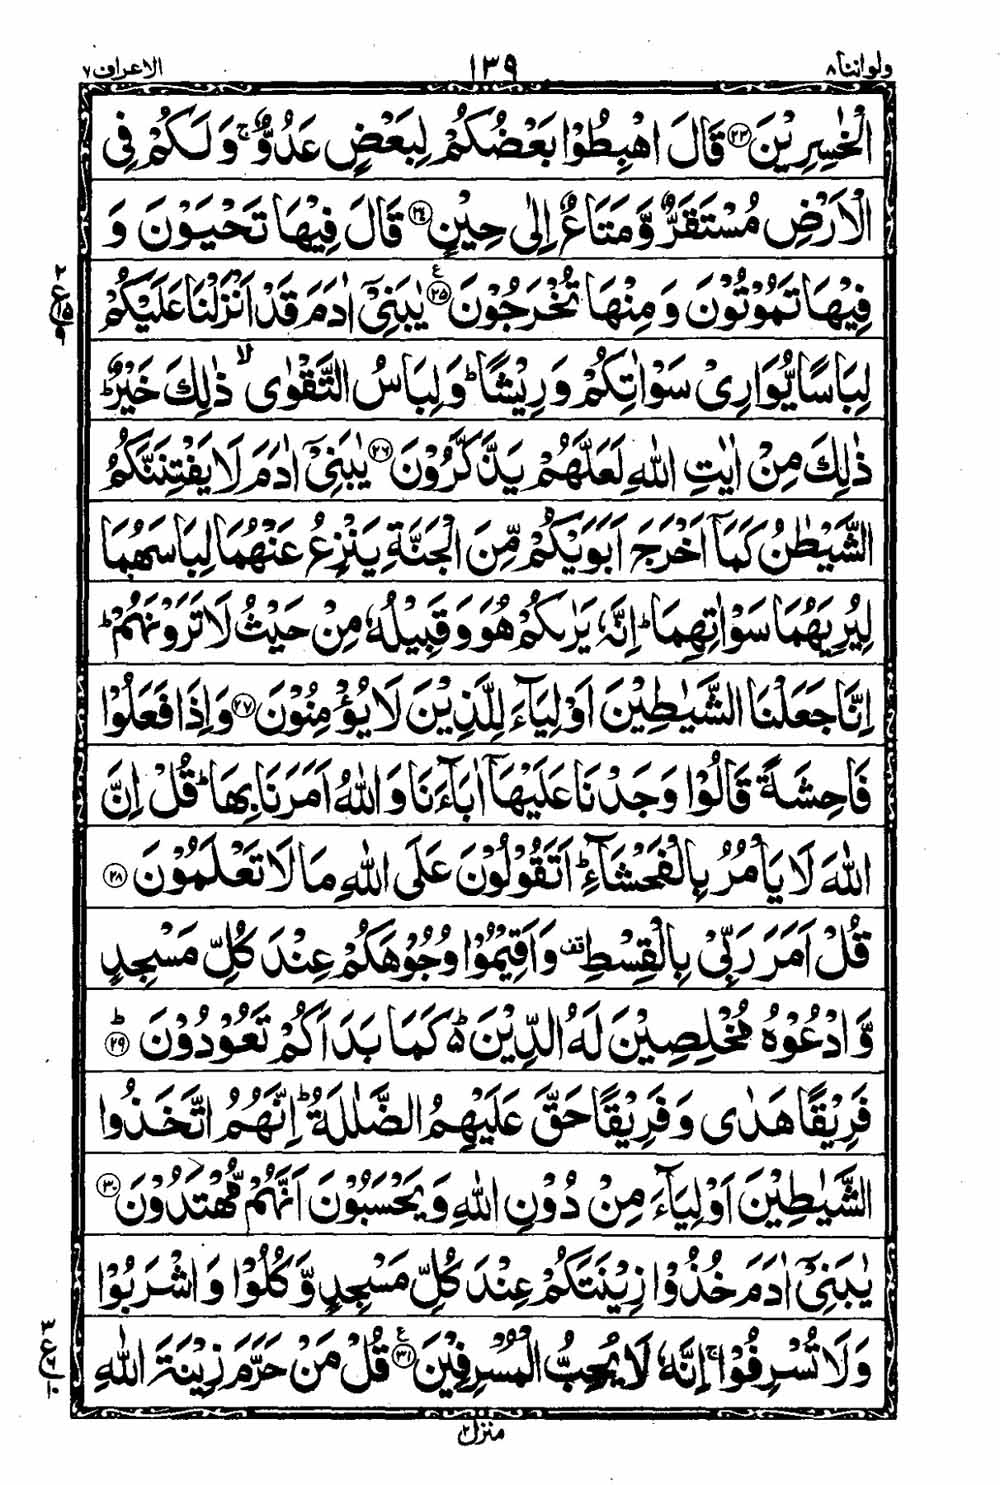 ولواننا ۸ ۱۳۹ الاعراف ۷
الْخٰسِرِيْنَ ۝۲۳ قَالَ اهْبِطُوْا بَعْضُكُمْ لِبَعْضٍ عَدُوٌّ ۚ وَ لَكُمْ فِى
الْاَرْضِ مُسْتَقَرٌّ وَّ مَتَاعٌ اِلٰى حِيْنٍ ۝۲۴ قَالَ فِيْهَا تَحْيَوْنَ وَ
فِيْهَا تَمُوْتُوْنَ وَ مِنْهَا تُخْرَجُوْنَ ۝۲۵ ع يٰبَنِىْۤ اٰدَمَ قَدْ اَنْزَلْنَا عَلَيْكُمْ
لِبَاسًا يُّوَارِىْ سَوْاٰتِكُمْ وَ رِيْشًا ؕ وَ لِبَاسُ التَّقْوٰى ۙ ذٰلِكَ خَيْرٌ ؕ
ذٰلِكَ مِنْ اٰيٰتِ اللّٰهِ لَعَلَّهُمْ يَذَّكَّرُوْنَ ۝۲۶ يٰبَنِىْۤ اٰدَمَ لَا يَفْتِنَنَّكُمُ
الشَّيْطٰنُ كَمَاۤ اَخْرَجَ اَبَوَيْكُمْ مِّنَ الْجَنَّةِ يَنْزِعُ عَنْهُمَا لِبَاسَهُمَا
لِيُرِيَهُمَا سَوْاٰتِهِمَا ؕ اِنَّهٗ يَرٰىكُمْ هُوَ وَ قَبِيْلُهٗ مِنْ حَيْثُ لَا تَرَوْنَهُمْ ؕ
اِنَّا جَعَلْنَا الشَّيٰطِيْنَ اَوْلِيَآءَ لِلَّذِيْنَ لَا يُؤْمِنُوْنَ ۝۲۷ وَ اِذَا فَعَلُوْا
فَاحِشَةً قَالُوْا وَجَدْنَا عَلَيْهَاۤ اٰبَآءَنَا وَ اللّٰهُ اَمَرَنَا بِهَا ؕ قُلْ اِنَّ
اللّٰهَ لَا يَاْمُرُ بِالْفَحْشَآءِ ؕ اَتَقُوْلُوْنَ عَلَى اللّٰهِ مَا لَا تَعْلَمُوْنَ ۝۲۸
قُلْ اَمَرَ رَبِّىْ بِالْقِسْطِ قف وَ اَقِيْمُوْا وُجُوْهَكُمْ عِنْدَ كُلِّ مَسْجِدٍ
وَّ ادْعُوْهُ مُخْلِصِيْنَ لَهُ الدِّيْنَ ؕ۬ كَمَا بَدَاَكُمْ تَعُوْدُوْنَ ؕ۝۲۹
فَرِيْقًا هَدٰى وَ فَرِيْقًا حَقَّ عَلَيْهِمُ الضَّلٰلَةُ ؕ اِنَّهُمُ اتَّخَذُوا
الشَّيٰطِيْنَ اَوْلِيَآءَ مِنْ دُوْنِ اللّٰهِ وَ يَحْسَبُوْنَ اَنَّهُمْ مُّهْتَدُوْنَ ۝۳۰
يٰبَنِىْۤ اٰدَمَ خُذُوْا زِيْنَتَكُمْ عِنْدَ كُلِّ مَسْجِدٍ وَّ كُلُوْا وَ اشْرَبُوْا
وَ لَا تُسْرِفُوْا ۚ اِنَّهٗ لَا يُحِبُّ الْمُسْرِفِيْنَ ۝۳۱ ع قُلْ مَنْ حَرَّمَ زِيْنَةَ اللّٰهِ
منزل ۲
۲ ع ۱۵ ۹
۳ ع ۶ ۱۰